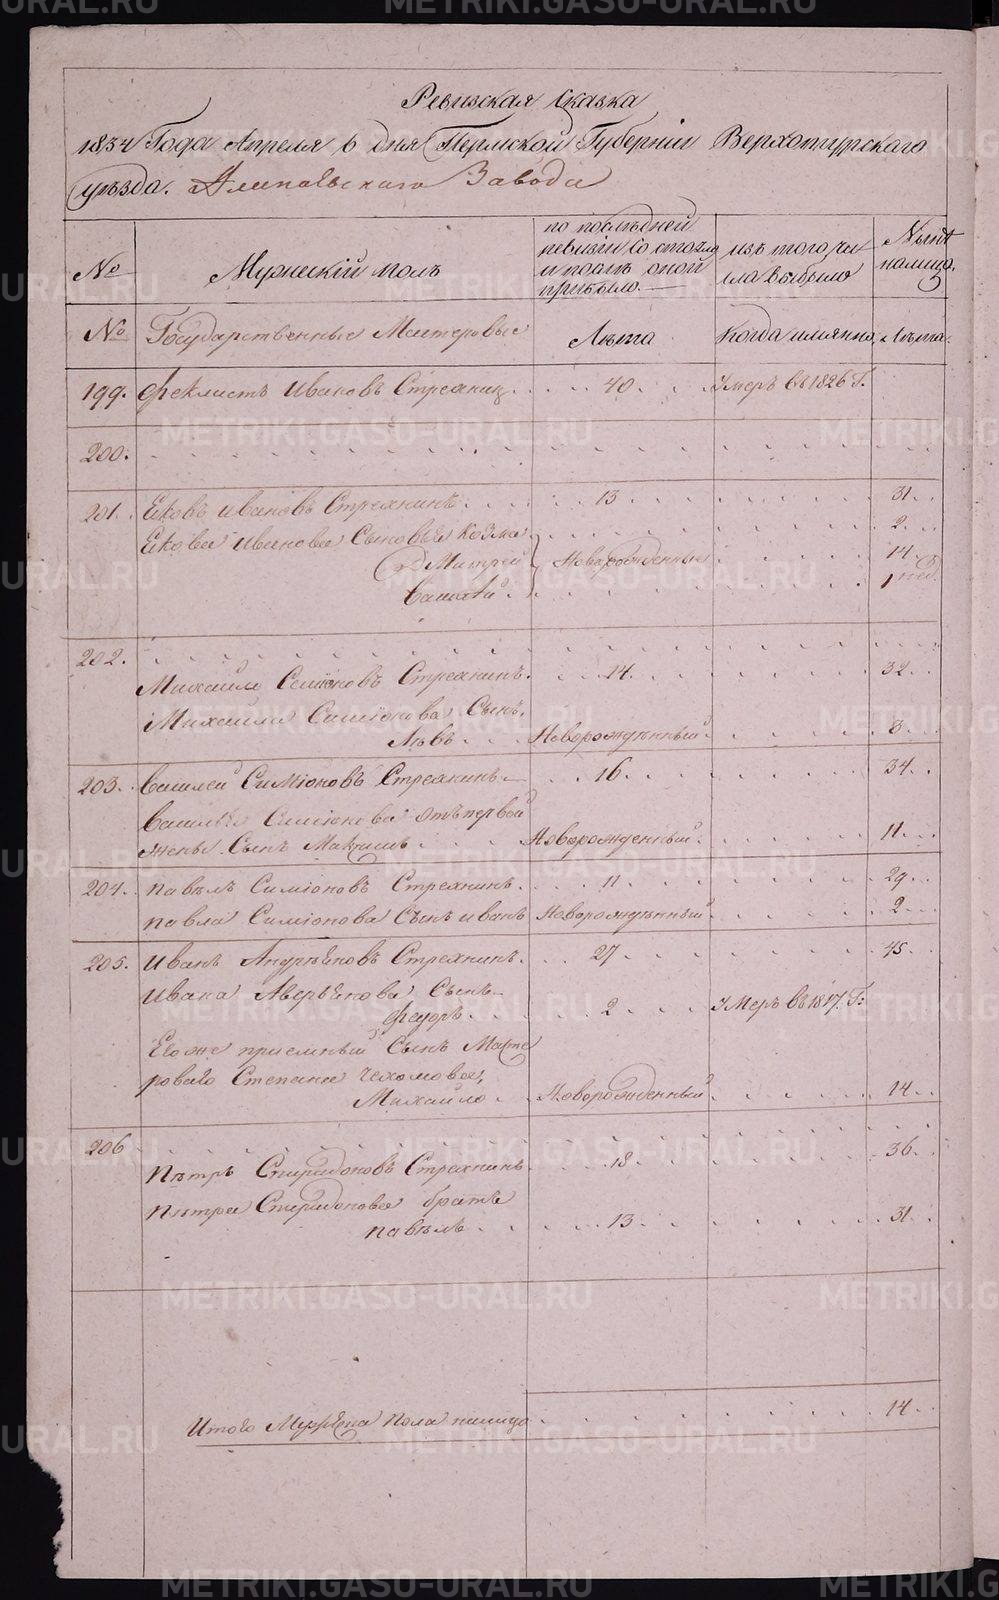 Ревизская Сказка
1834 Года Апреля 6 дня Пермской Губерніи Верхотурскаго
уѣзда. Алапаевскаго Завода
№ Мужескій полъ
по послѣдней ревизіи состояло и послѣ оной прибыло.
изъ того числа выбыло
Нынѣ налицо.
№ Государственные Мастеровые Лѣта Когда имянно Лѣта.
199. Феклистъ Ивановъ Стрехнинъ 40 Умеръ въ 1826 Г.
200.
201. Яковъ Ивановъ Стрехнинъ 13 31
Якова Иванова Сыновья Козма 2
Дмитрей Новорожденные 14
Василей 1 нед.
202.
Михайло Симіоновъ Стрехнинъ 14 32
Михайла Симіонова Сынъ
Львъ Новорожденный 8
203. Василей Симіоновъ Стрехнинъ 16 34
Василья Симіонова отъ первой
жены Сынъ Максимъ Новорожденный 11
204. Павелъ Симіоновъ Стрехнинъ 11 29
Павла Симіонова Сынъ Иванъ Новорожденный 2
205. Иванъ Стрехнинъ 27 45
Ивана Сынъ
Федоръ 2 Умеръ въ 1817 Г.
Егоже приемный Сынъ Масте
роваго Степана
Михайло Новорожденный 14
206
Пѣтръ Спиридоновъ Стрехнинъ 18 36
Пѣтра Спиридонова братъ
Павелъ 13 31
Итого Мужеска Пола налицо 14
METRIKI.GASO-URAL.RU